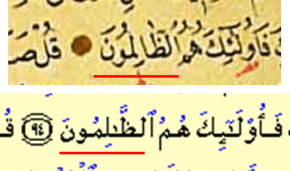 فَأُولَٰئِكَ هُمُ الظَّالِمُونَ قُلْ صَدَ
فَأُو۟لَٰٓئِكَ هُمُ ٱلظَّٰلِمُونَ ٩٤ قُ